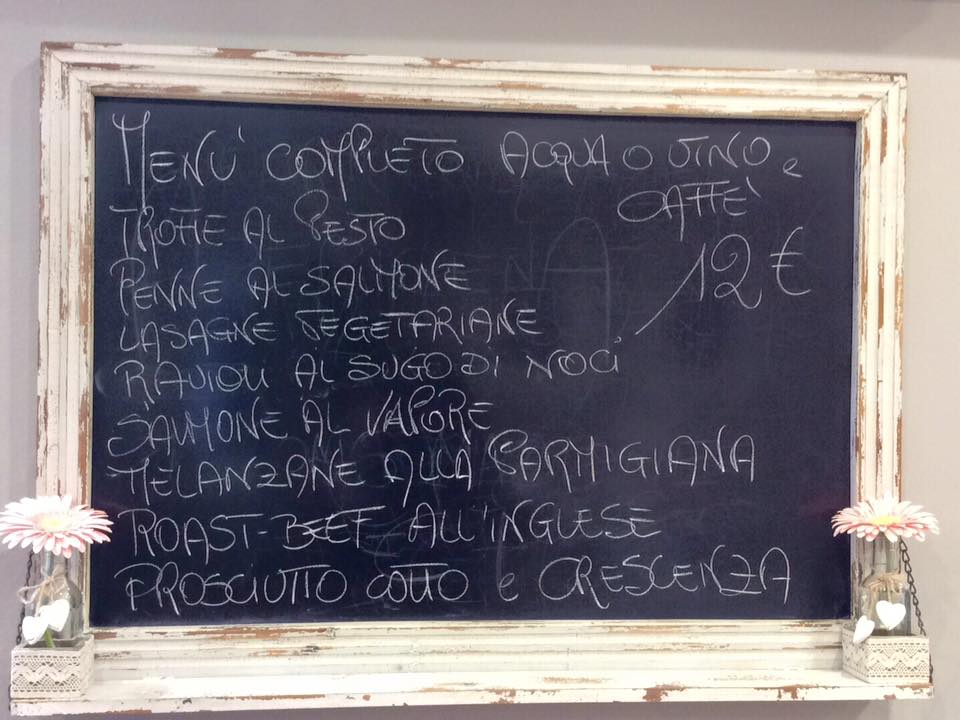 MENU' COMPLETO ACQUA O VINO e
CAFFE'
12 €
TROFIE AL PESTO
PENNE AL SALMONE
LASAGNE VEGETARIANE
RAVIOLI AL SUGO DI NOCI
SALMONE AL VAPORE
MELANZANE ALLA PARMIGIANA
ROAST-BEEF ALL'INGLESE
PROSCIUTTO COTTO e CRESCENZA